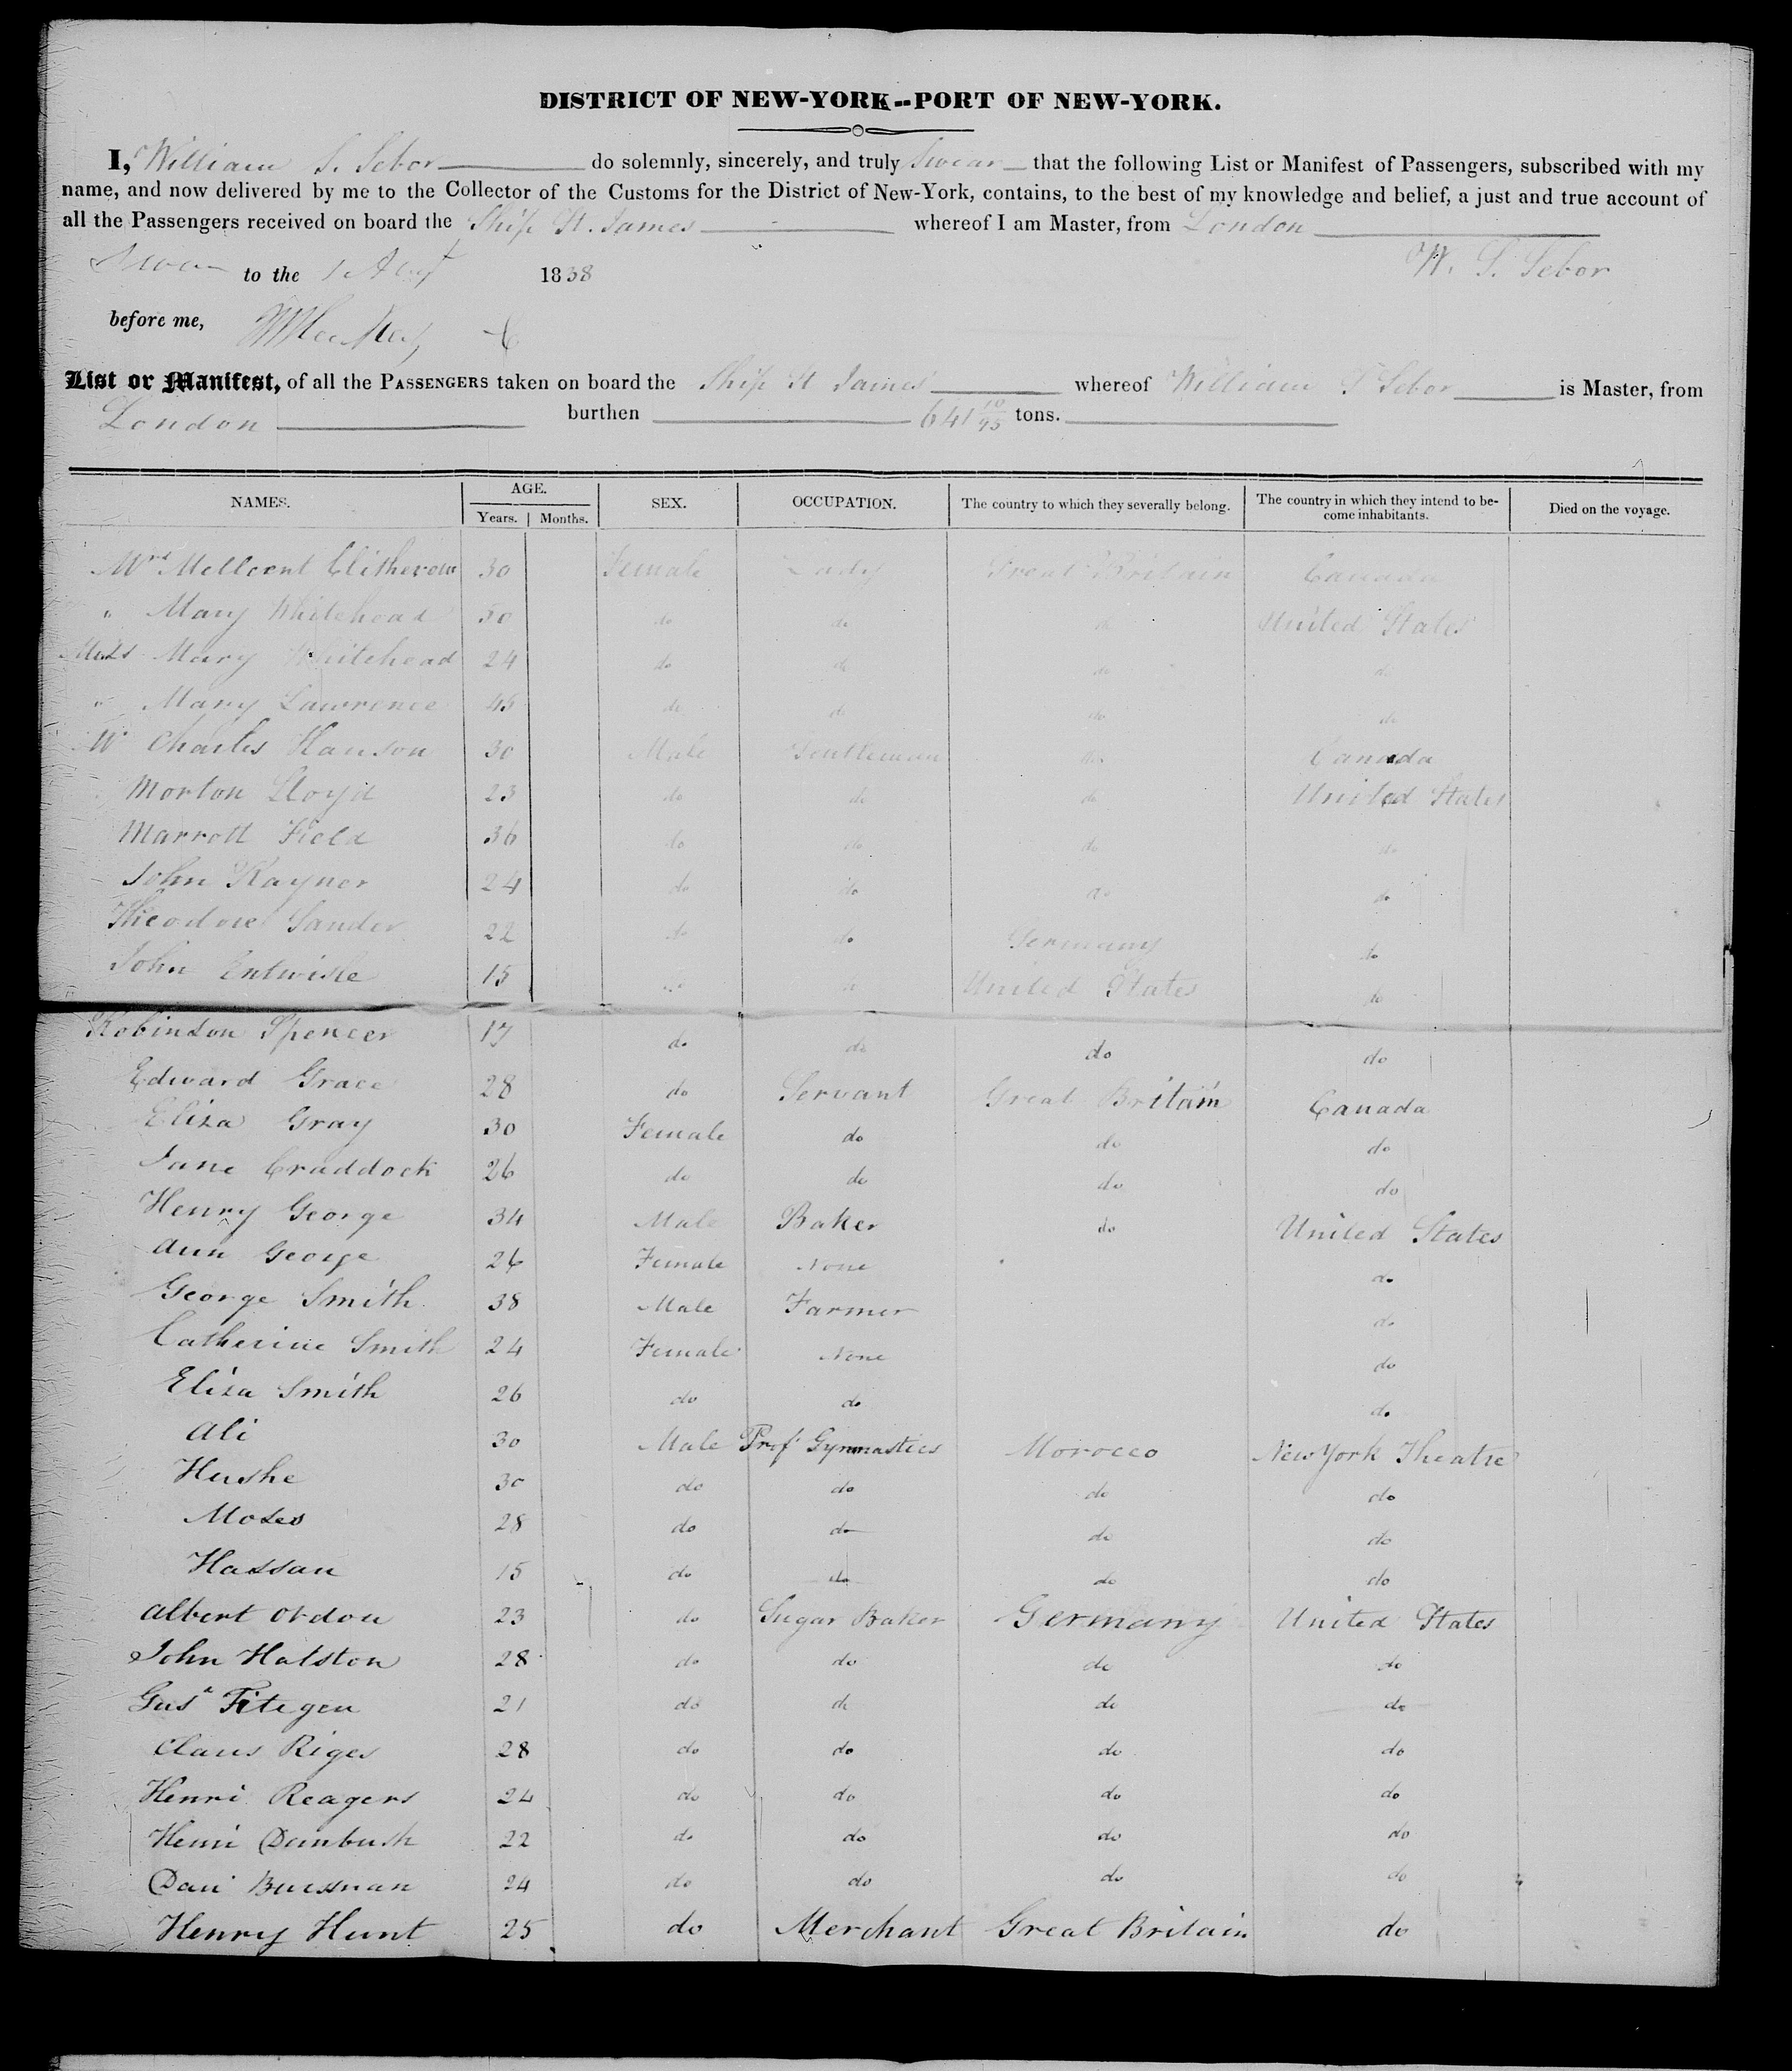 DISTRICT OF NEW-YORK--PORT OF NEW-YORK.
I, William S. Sebor do solemnly, sincerely, and truly Swear that the following List or Manifest of Passengers, subscribed with my
name, and now delivered by me to the Collector of the Customs for the District of New-York, contains, to the best of my knowledge and belief, a just and true account of
all the Passengers received on board the Ship St. James whereof I am Master, from London
Sworn to the 1 Augt 1838 W. S. Sebor
before me,
List or Manifest, of all the PASSENGERS taken on board the Ship St James whereof William S Sebor is Master, from
London burthen 641 10/95 tons.
NAMES. AGE. Years. Months. SEX. OCCUPATION. The country to which they severally belong. The country in which they intend to become inhabitants. Died on the voyage.
Mrs Mellcent Clitherow 30 Female Lady Great Britain Canada
" Mary Whitehead 50 do do do United States
Miss Mary Whitehead 24 do do do do
" Mary Lawrence 45 do do do do
Mr Charles Hanson 30 Male Gentleman do Canada
Morton Lloyd 23 do do do United States
Marrott Field 36 do do do do
John Rayner 24 do do do do
Theodore Sander 22 do do Germany do
John Entwisle 15 do do United States do
Robinson Spencer 17 do do do do
Edward Grace 28 do Servant Great Britain Canada
Eliza Gray 30 Female do do do
Jane Craddock 26 do do do do
Henry George 34 Male Baker do United States
Ann George 26 Female None do
George Smith 38 Male Farmer do
Catherine Smith 24 Female None do
Eliza Smith 26 do do do
Ali 30 Male Prof Gymnastics Morocco New York Theatre
Hushe 30 do do do do
Moses 28 do do do do
Hassan 15 do do do do
Albert Ordon 23 do Sugar Baker Germany United States
John Halston 28 do do do do
Gusa Fitegen 21 do do do do
Claus Riges 28 do do do do
Henri Reagers 24 do do do do
Henri Dambush 22 do do do do
Dani Bussman 24 do do do do
Henry Hunt 25 do Merchant Great Britain do